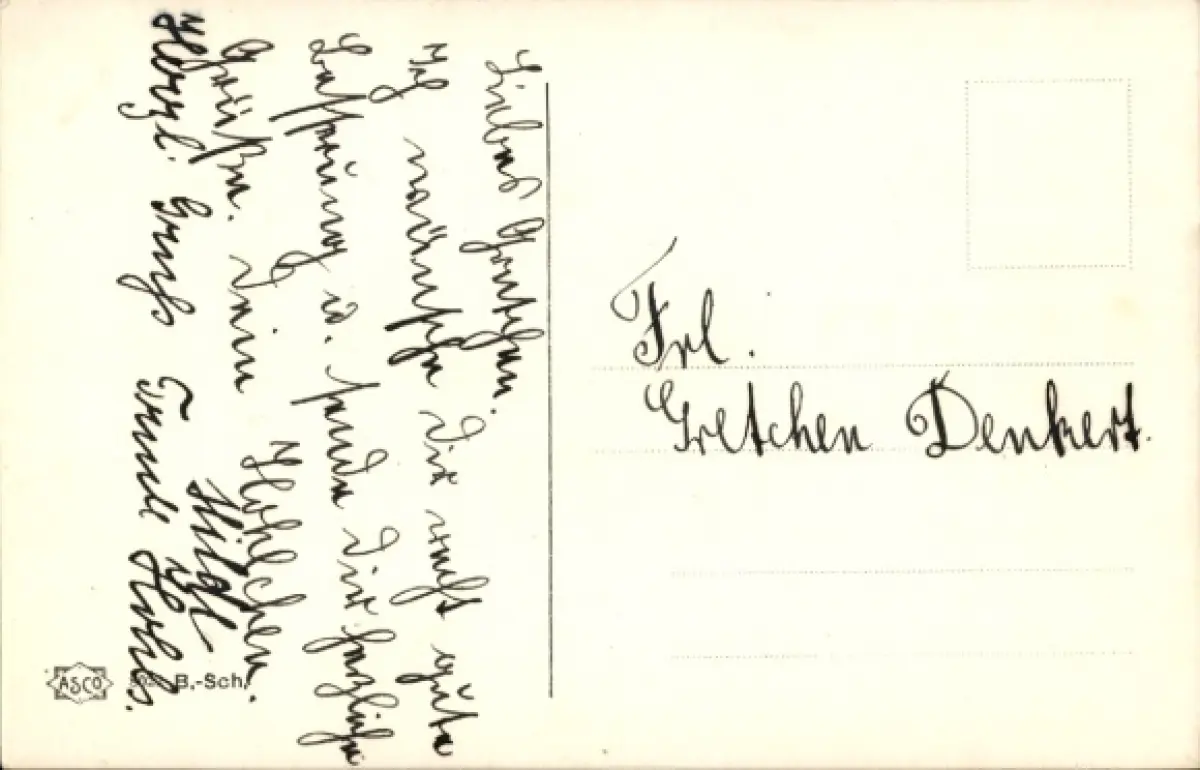 Liebes Gretchen.
Ich wünsche Dir recht gute
Besserung u. sende Dir herzliche
Grüße. Dein Hohlchen.
Hilde
Herzl. Gruß Trude
Frl.
Gretchen Denkert.
ASCO
B.-Sch.